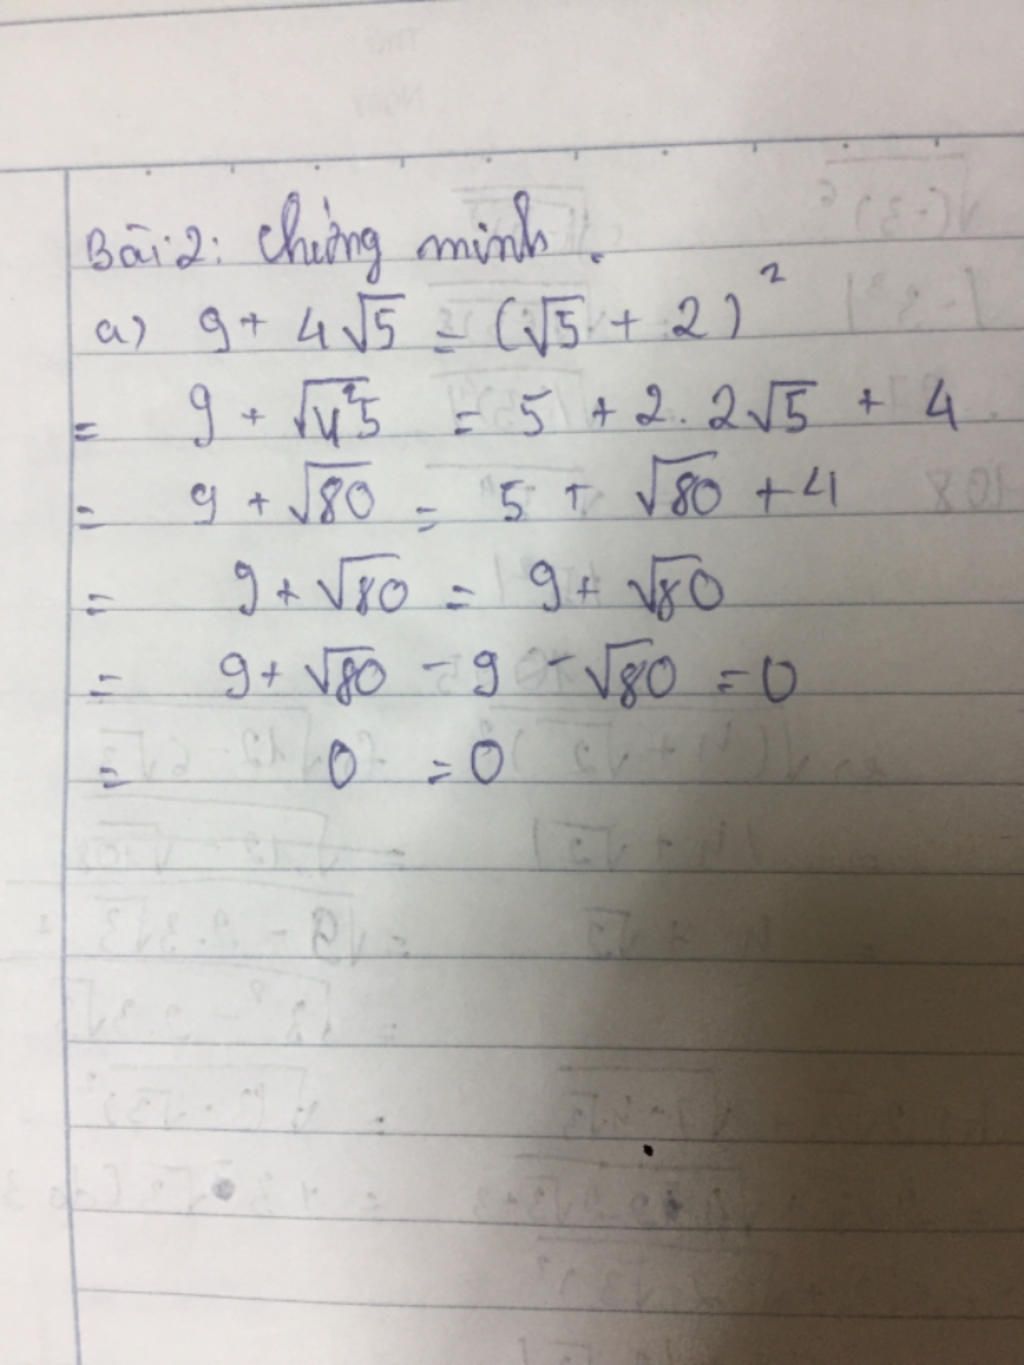 Bài 2: Chứng minh.
a) 9 + 4√5 = (√5 + 2)²
= 9 + √4²5 = 5 + 2.2√5 + 4
= 9 + √80 = 5 + √80 + 4
= 9 + √80 = 9 + √80
= 9 + √80 - 9 - √80 = 0
= 0 = 0